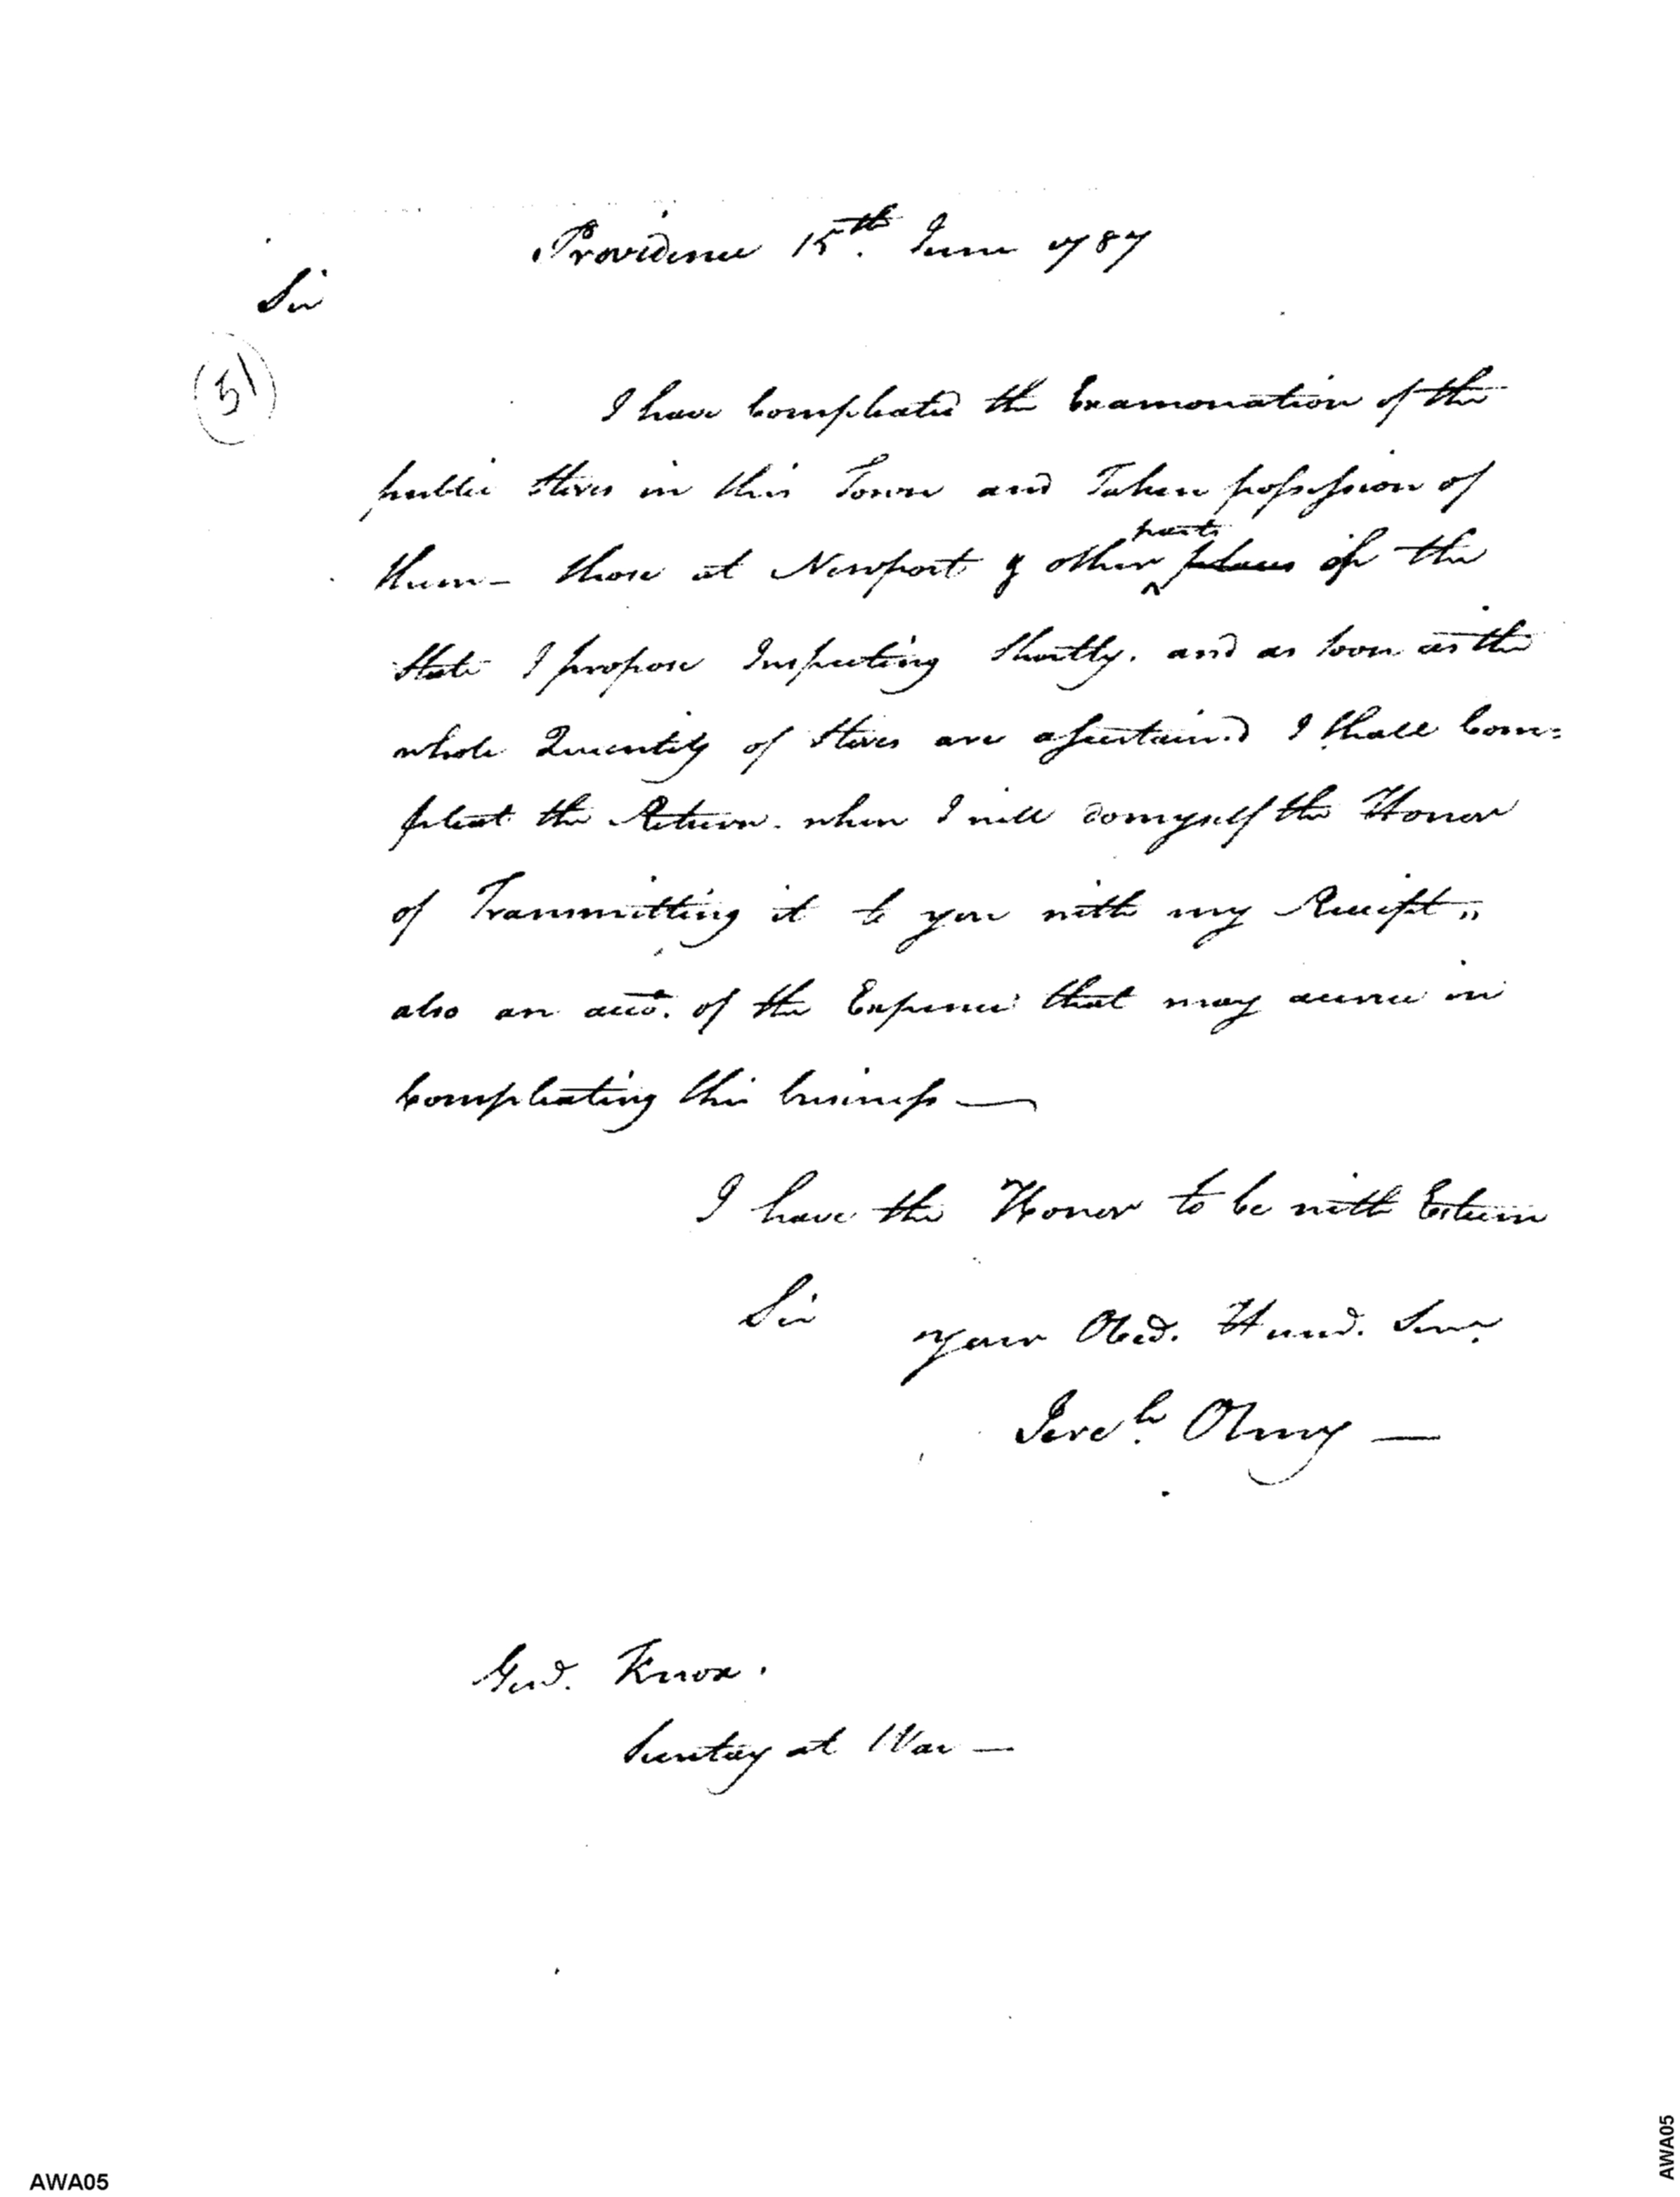 Providence 15th. June 1787
Sir
(51)
I have Compleated the Examonation of the
public Stores in this Town and Taken possession of
parts
them - those at Newport & other places of the
State I propose Inspecting Shortly. and as soon as the
whole Quantity of Stores are assertained I shall Com=
pleat the Return. when I will do myself the Honor
of Transmitting it to you with my Receipt „
also an acco. of the Expence that may accrue in
Compleating this business —
I have the Honor to be with Esteem
Sir your Obed. Humb. Serv.
Jereh. Olney —
Genl. Knox.
Secretary at War —
AWA05
AWA05